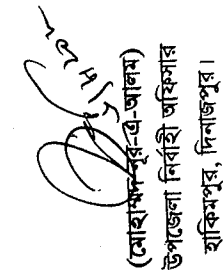 (মোহাম্মদ নূর-এ-আলম)
উপজেলা নির্বাহী অফিসার
হাকিমপুর, দিনাজপুর।